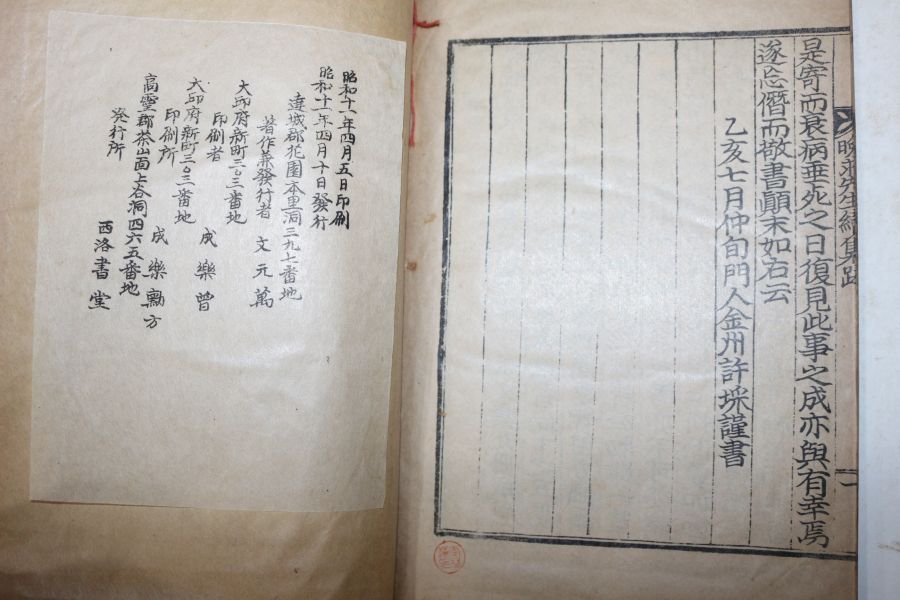 晚求先生續集跋
是寄而衰病垂死之日復見此事之成亦與有幸焉
遂忘僭而敬書顚末如右云
乙亥七月仲旬門人金州許埰謹書
昭和十一年四月五日印刷
昭和十一年四月十日發行
達城郡花園本里洞三九七番地
著作兼發行者 文元萬
大邱府新町三〇三番地
印刷者 成樂曾
大邱府新町三〇三番地
印刷所 成樂勳方
高靈郡茶山面上谷洞四六五番地
発行所 西洛書堂